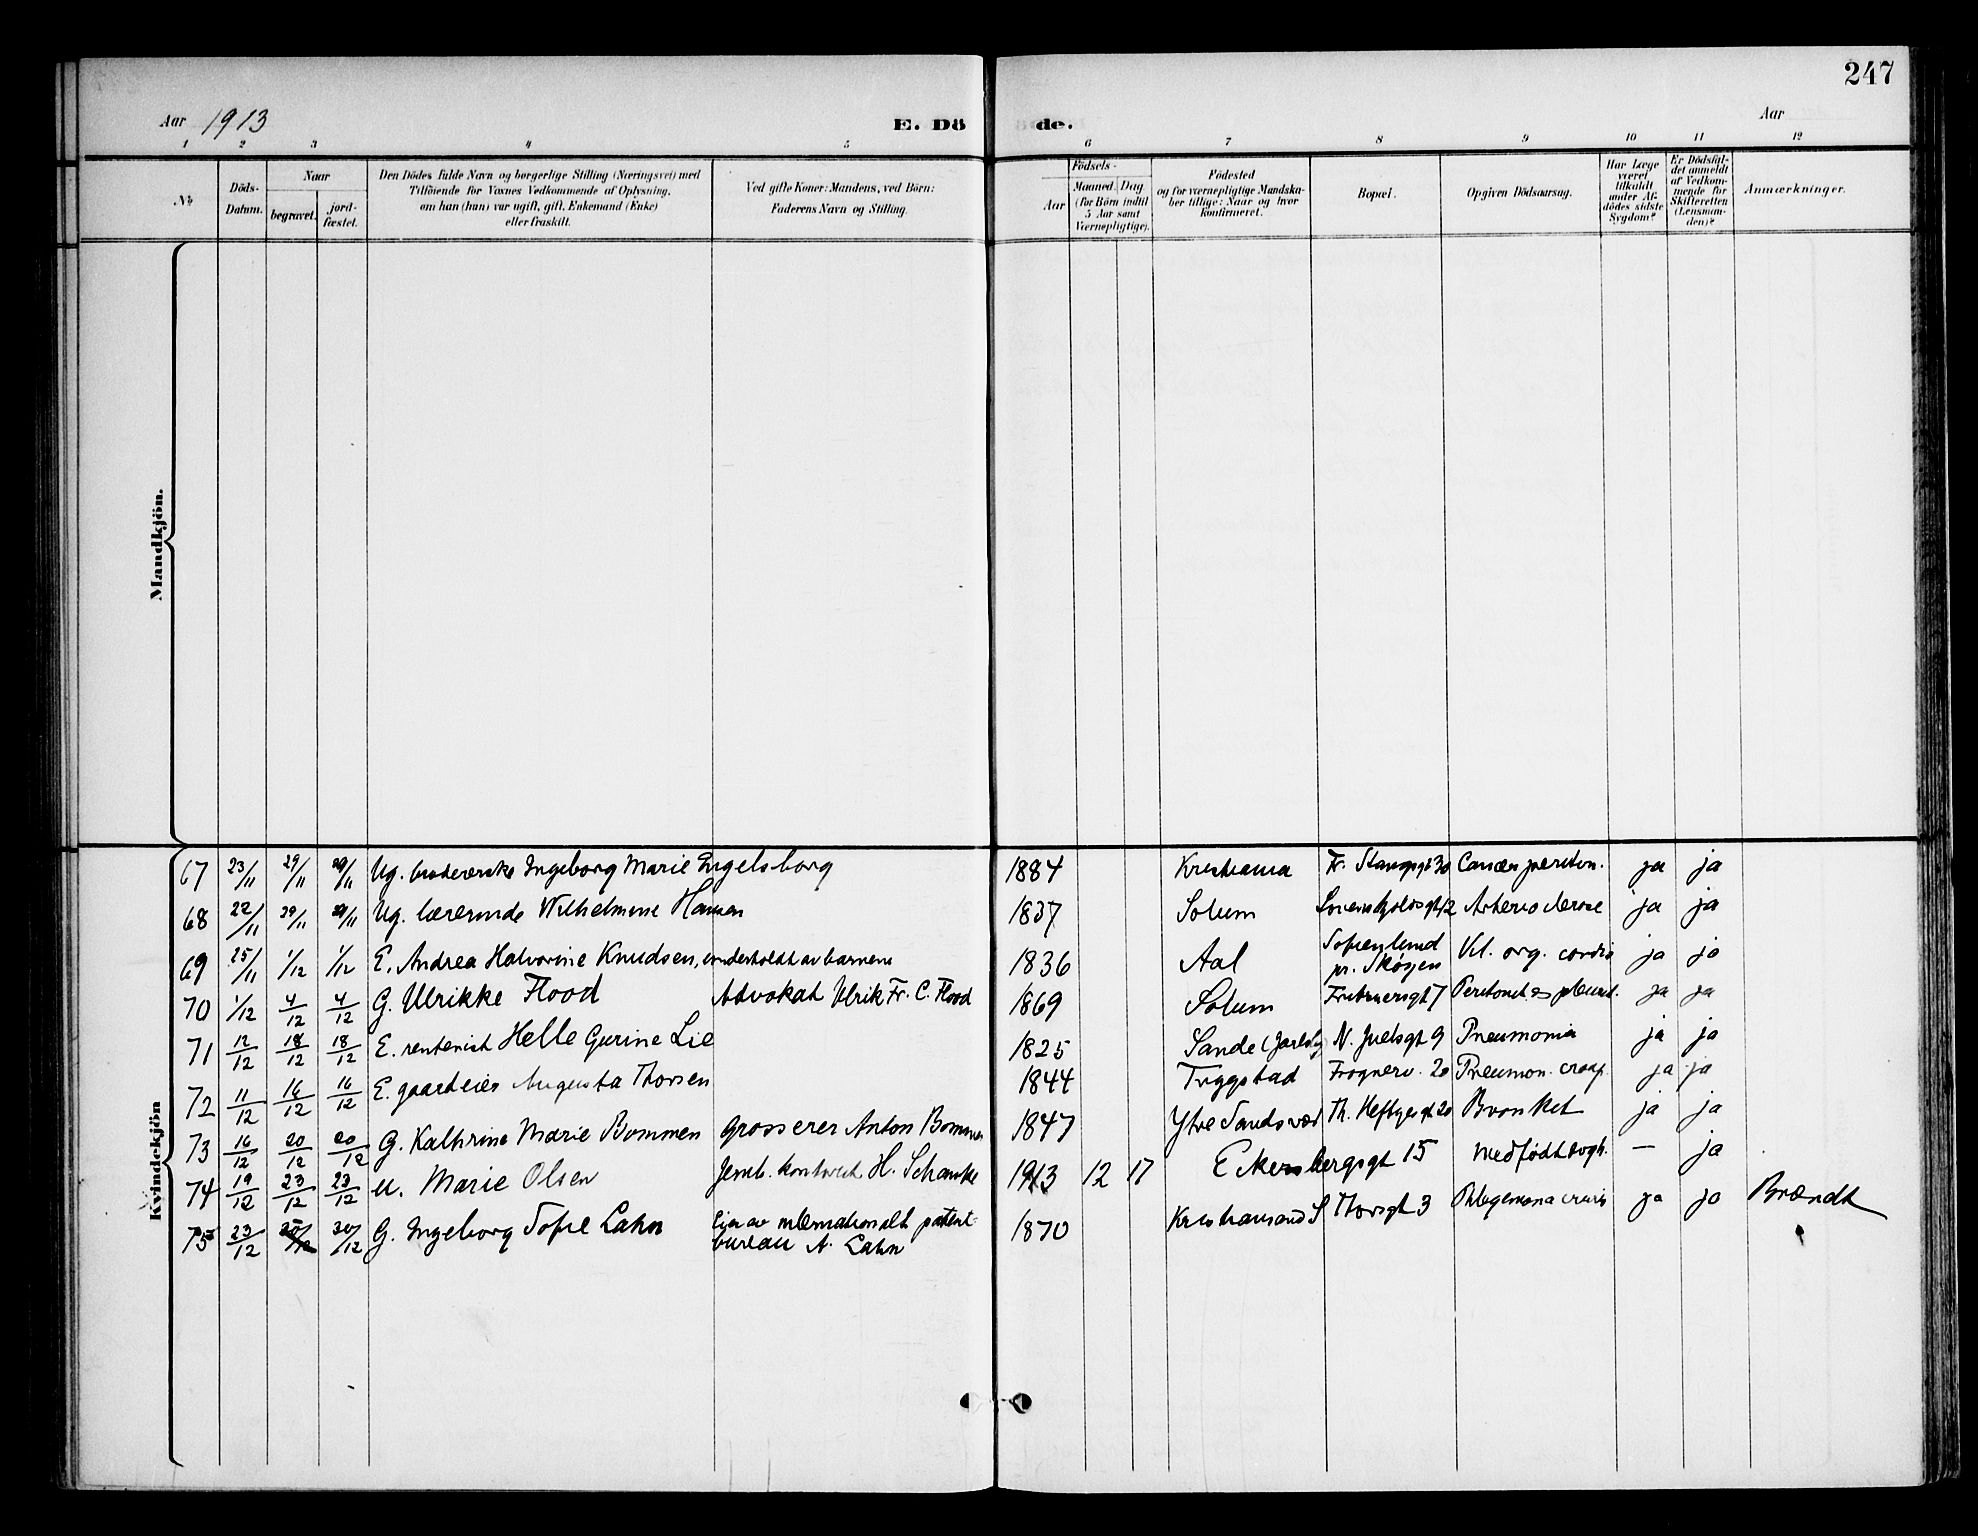 247
Aar 1913
E. Dö de.
Aar
1 2 3 4 5 6 7 8 9 10 11 12
№
Döds-Datum.
Naar
begravet.
jord-fæstet.
Den Dödes fulde Navn og borgerlige Stilling (Næringsvei) med
Tilföiende for Voxnes Vedkommende af Oplysning,
om han (hun) var ugift, gift, Enkemand (Enke)
eller fraskilt.
Ved gifte Koner: Mandens, ved Börn:
Faderens Navn og Stilling.
Födsels-
Aar
Maaned. Dag
(for Börn indtil
5 Aar samt
Værnepligtige).
Födested
og for værnepligtige Mandska-
ber tillige: Naar og hvor
konfirmeret.
Bopæl.
Opgiven Dödsaarsag.
Har Læge
været
tilkaldt
under Af-
dödes sidste
Sygdom?
Er Dödsfal-
det anmeldt
af Vedkom-
mende for
Skifteretten
(Lensman-
den)?
Anmærkninger.
Mandkjön.
Kvindekjön
67 23/11 29/11 29/11 Ug. Ingeborg Marie Engelsborg 1884 Kristiania Fr. Stangsgt 30 ja ja
68 22/11 29/11 29/11 Ug. lærerinde Wilhelmine Hansen 1837 Solum ja ja
69 25/11 1/12 1/12 E. Andrea Halvorine Knudsen, underholdt av barnene 1836 Aal Sofienlund pr. Skøyen Vit. org. cordis ja ja
70 1/12 4/12 4/12 G. Ulrikke Flood Advokat Ulrik Fr. C. Flood 1869 Solum Frubnersgt 7 ja ja
71 12/12 18/12 18/12 E. rentenist Helle Gurine Lie 1825 Sande (Jarlsbg N. Juelsgt 9 Pneumonia ja ja
72 11/12 16/12 16/12 E. gaardeier Augusta Thorsen 1844 Trygstad Frognerv. 20 Pneumon. croup. ja ja
73 16/12 20/12 20/12 G. Kathrine Marie Bommen grosserer Anton Bommen 1847 Ytre Sandsvær Th. Heftyesgt 20 Bronkit ja ja
74 19/12 23/12 23/12 u. Marie Olsen Jernb. kontorist H. Schanke 1913 12 17 Eckersbergsgt 15 medfødt svagh. — ja
75 23/12 30/12 G. Ingeborg Sofie Lahn Eier av internationalt patent-
bureau A. Lahn 1870 Kristiansand S Thorsgt 3 Phlegmona cruris ja ja Brændt